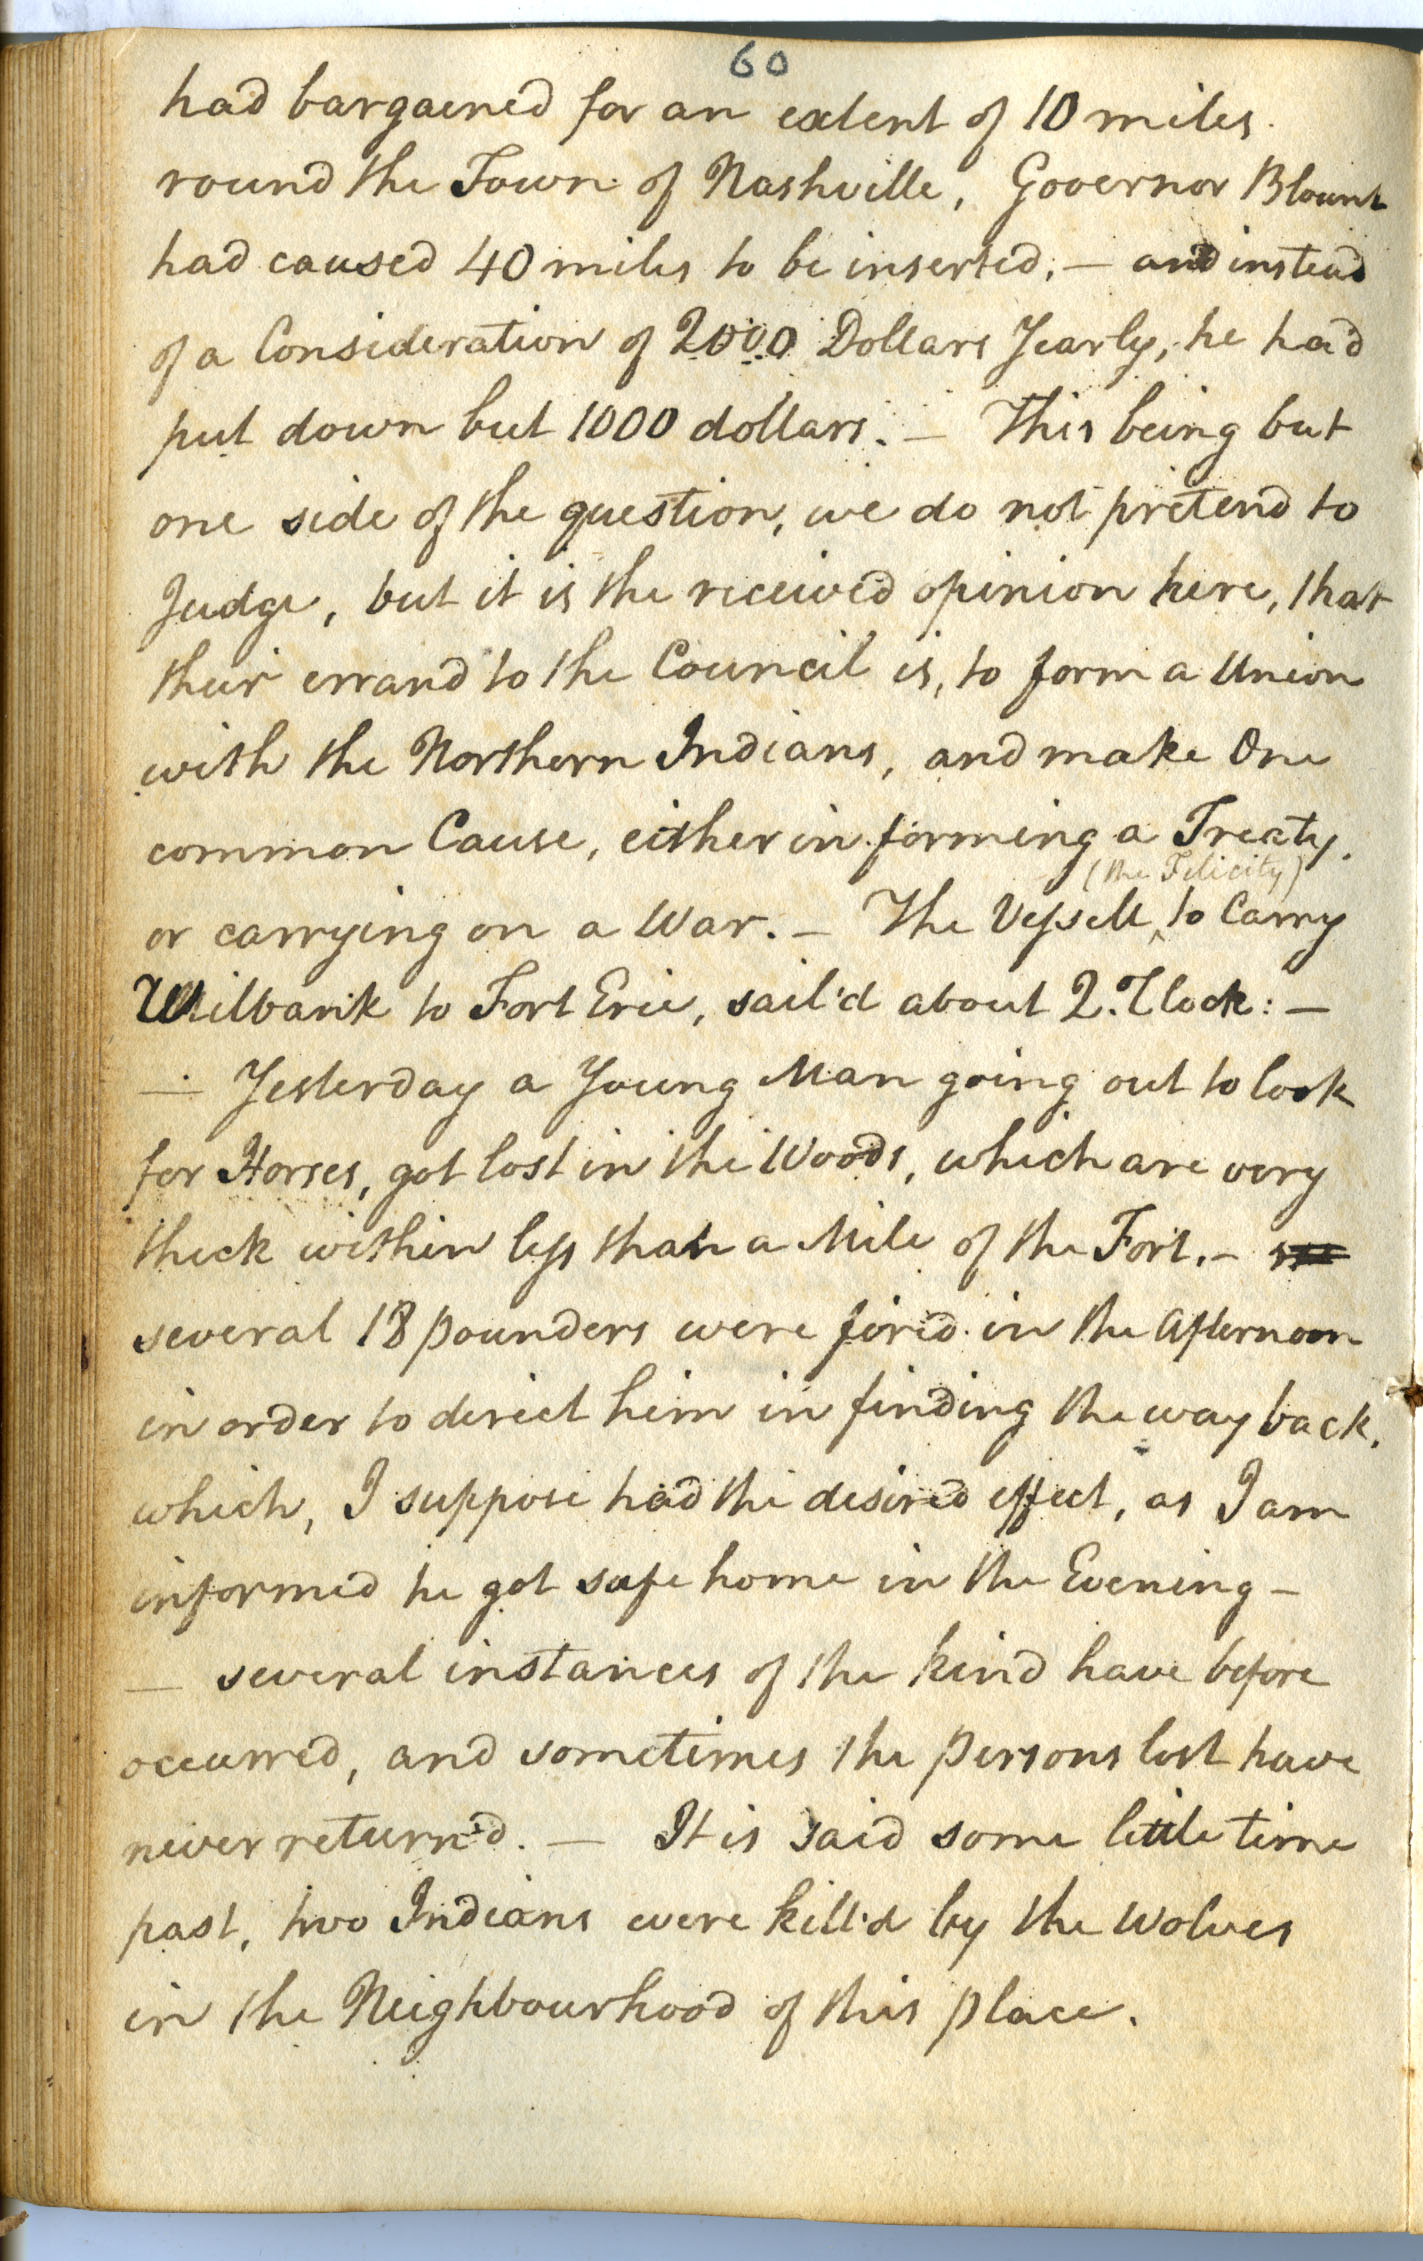 60
had bargained for an extent of 10 miles
round the Town of Nashville, Governor Blount
had caused 40 miles to be inserted; — and instead
of a Consideration of 2000 Dollars Yearly, he had
put down but 1000 dollars. — This being but
one side of the question, we do not pretend to
Judge, but it is the received opinion here, that
their errand to the Council is, to form a Union
with the Northern Indians, and make One
common Cause, either in forming a Treaty,
(the Felicity)
or carrying on a War. — The Vessell ‸ to Carry
Wilbank to Fort Erie, sail'd about 2. Clock: —
— Yesterday a Young Man going out to look
for Horses, got lost in the Woods, which are very
thick within less than a Mile of the Fort. —
several 18 pounders were fired in the Afternoon
in order to direct him in finding the way back,
which, I suppose had the desired effect, as I am
informed he got safe home in the Evening —
— several instances of the kind have before
occurred, and sometimes the persons lost have
never return'd. — It is said some little time
past, two Indians were kill'd by the Wolves
in the Neighbourhood of this place.